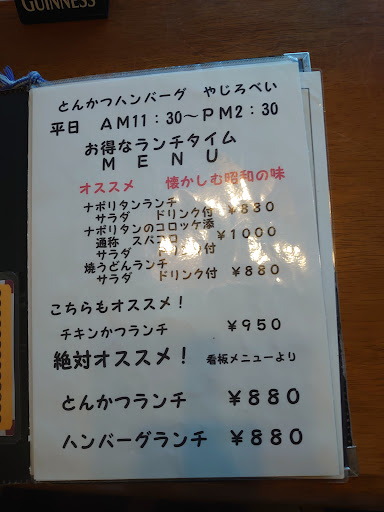 GUINNESS
とんかつハンバーグ やじろべい
平日 AM11:30～PM2:30
お得なランチタイム
MENU
オススメ 懐かしむ昭和の味
ナポリタンランチ
サラダ ドリンク付 ¥830
ナポリタンのコロッケ添
通称 スパコロ ¥1000
サラダ ドリンク付
焼うどんランチ
サラダ ドリンク付 ¥880
こちらもオススメ!
チキンかつランチ ¥950
絶対オススメ! 看板メニューより
とんかつランチ ¥880
ハンバーグランチ ¥880